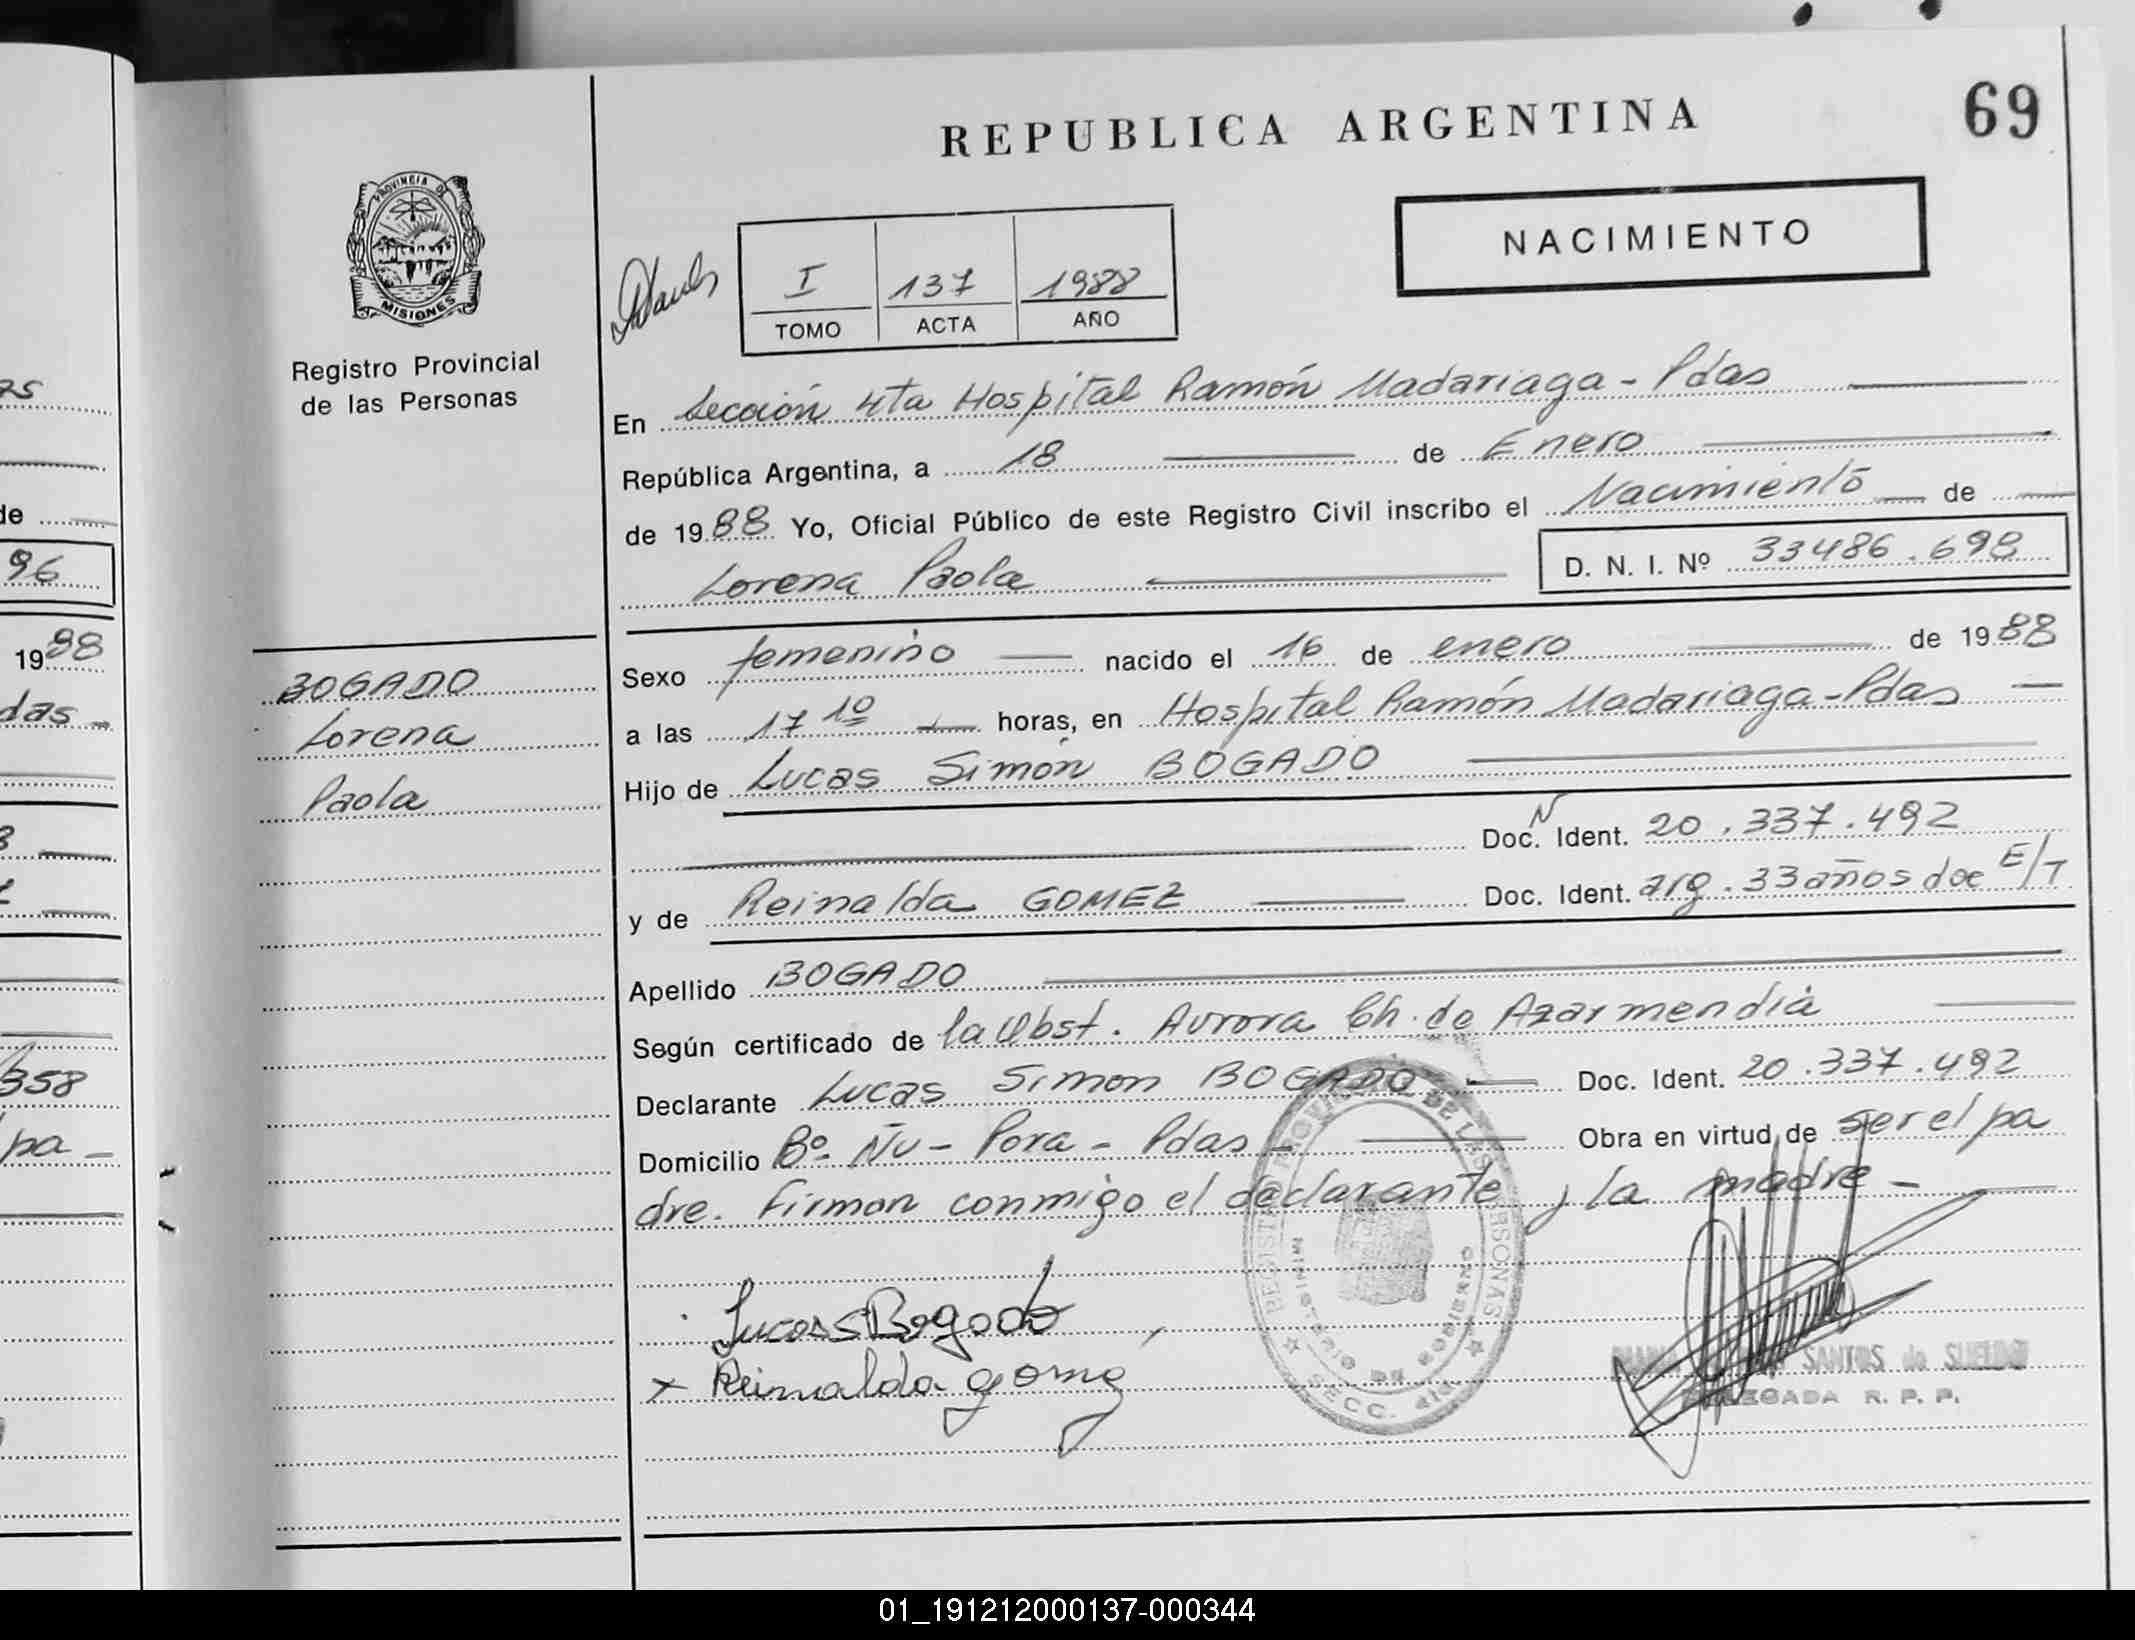 REPUBLICA ARGENTINA
69
PROVINCIA DE
MISIONES
Registro Provincial
de las Personas
NACIMIENTO
I 137 1988
TOMO ACTA AÑO
En Sección 4ta Hospital Ramón Madariaga - Pdas
República Argentina, a 18 de Enero
de 1988 Yo, Oficial Público de este Registro Civil inscribo el Nacimiento de
Lorena Paola D. N. I. Nº 33486.698
BOGADO
Lorena
Paola
Sexo femenino nacido el 16 de enero de 1988
a las 17 10 horas, en Hospital Ramón Madariaga - Pdas
Hijo de Lucas Simón BOGADO
Doc. N Ident. 20.337.492
y de Reinalda GOMEZ Doc. Ident. arg. 33 años doc E/T
Apellido BOGADO
Según certificado de la Obst. Aurora Ch. de Azarmendia
Declarante Lucas Simon BOGADO Doc. Ident. 20.337.492
Domicilio Bº Ñu - Pora - Pdas - Obra en virtud de ser el pa
dre. Firman conmigo el declarante y la madre -
REGISTRO PROVINCIAL DE LAS PERSONAS
MINISTERIO DE GOBIERNO
SECC. 4ta
Lucas S Bogado
x Reinalda gomez
SANTOS de SUELDO
DELEGADA R. P. P.
as
de
96
1988
das -
358
pa -
01_191212000137-000344